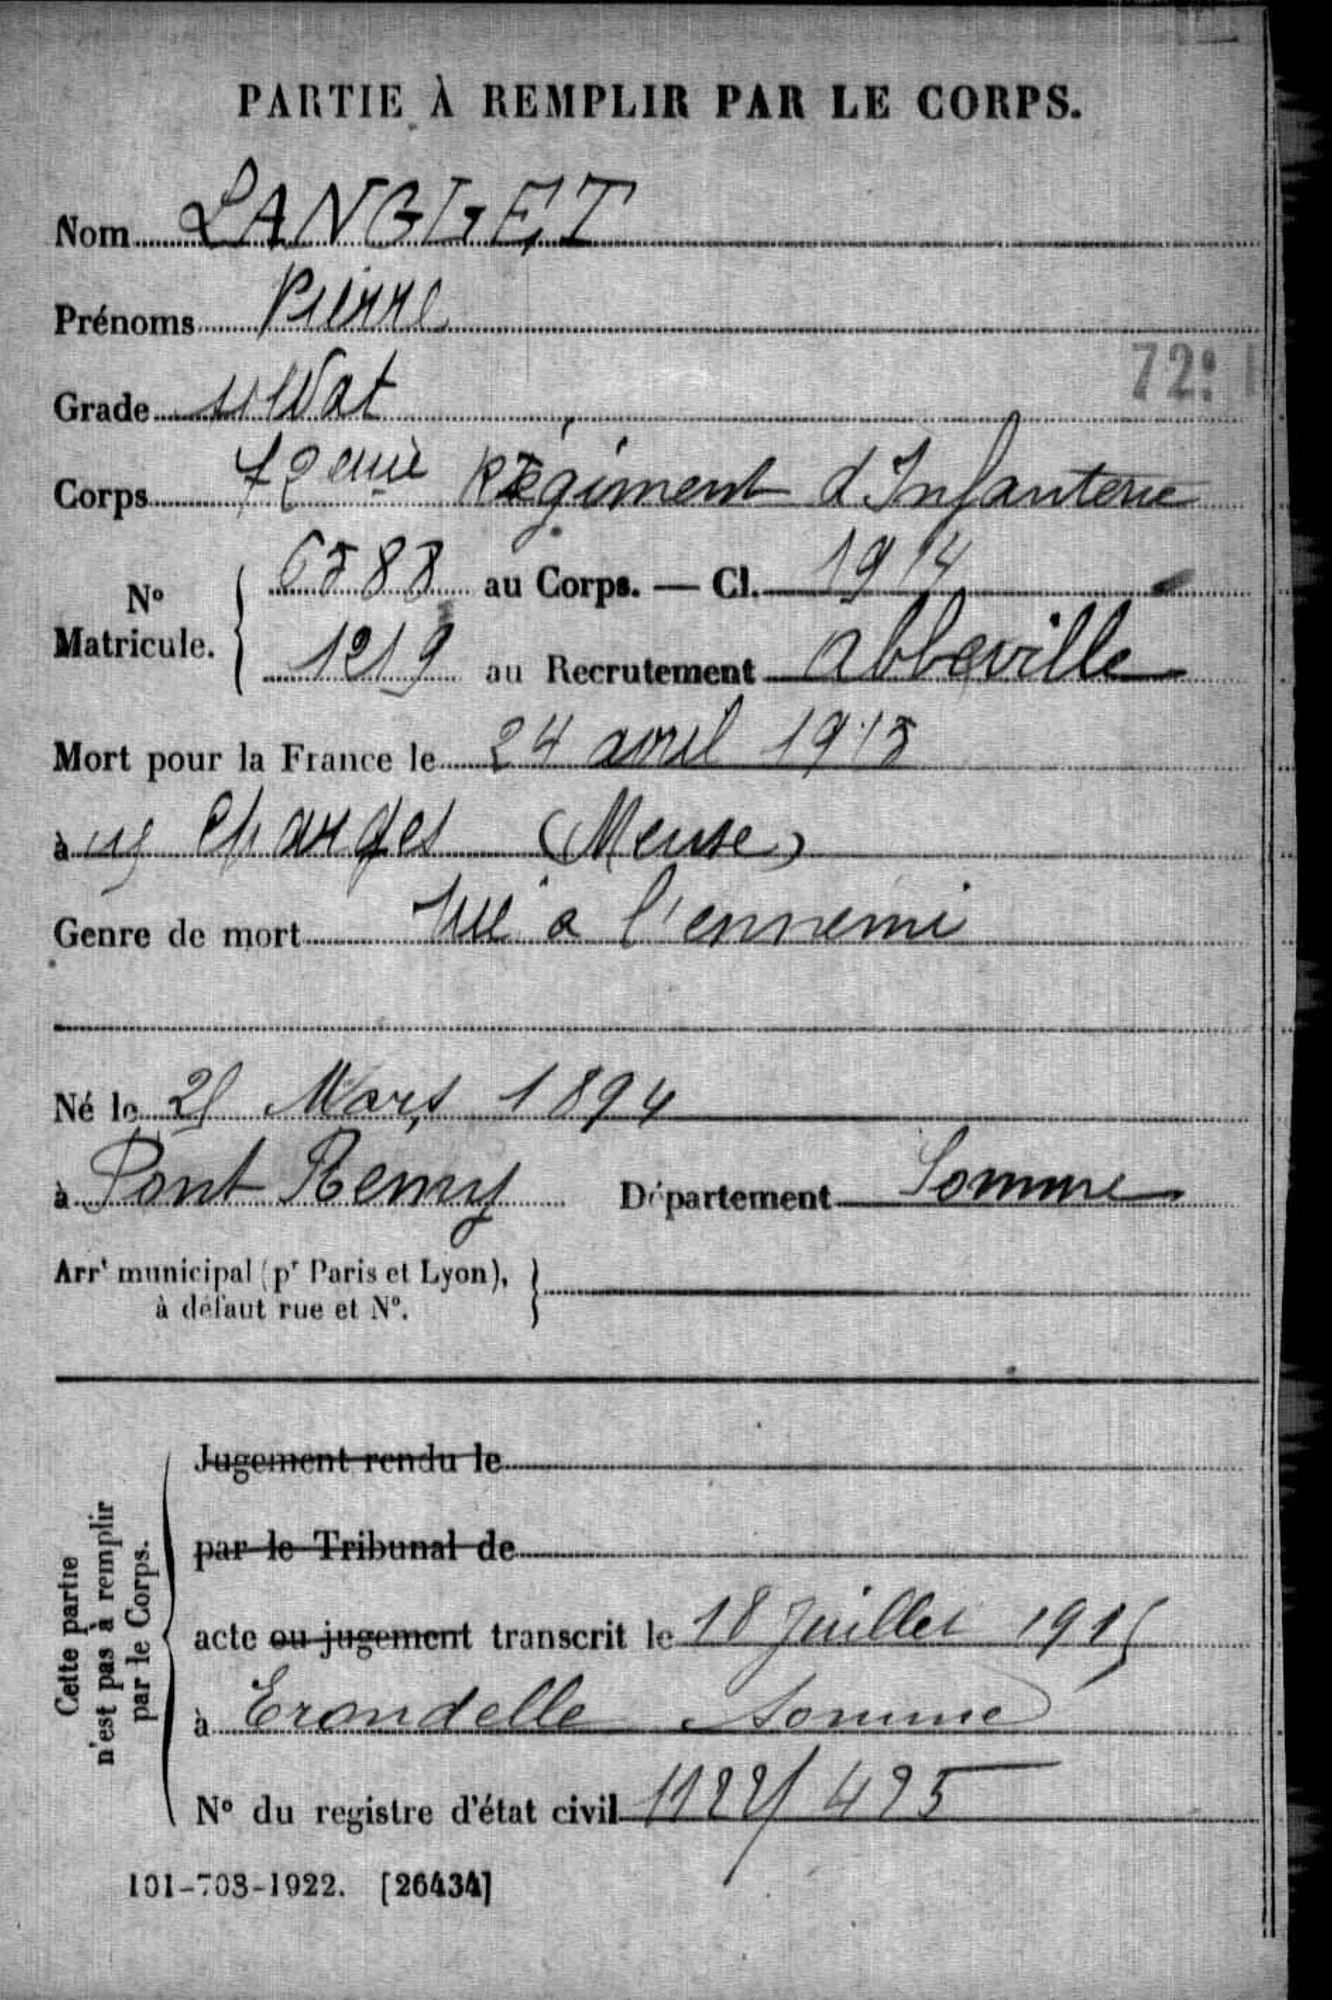 PARTIE À REMPLIR PAR LE CORPS.
Nom LANGLET
Prénoms Pierre
72:
Grade soldat
Corps 72eme Régiment d'Infanterie
N° Matricule. 6588 au Corps. — Cl. 1914
1219 au Recrutement Abbeville
Mort pour la France le 24 avril 1915
à (Meuse)
Genre de mort tué à l'ennemi
Né le 21 Mars 1894
à Pont Remy Département Somme
Arrt municipal (pr Paris et Lyon),
à défaut rue et N°.
Cette partie
n'est pas à remplir
par le Corps.
Jugement rendu le
par le Tribunal de
acte ou jugement transcrit le 18 Juillet 1915
à Erondelle Somme
N° du registre d'état civil
101-708-1922. [26434]